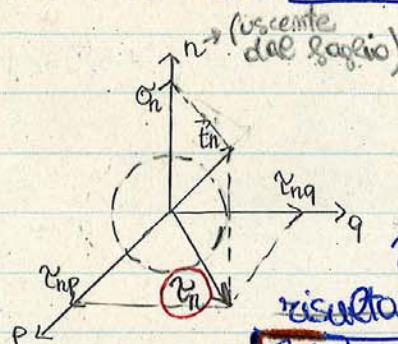 n → (uscente
dal foglio)
σn
tn
τnq
q
τnp
τn
p
risulta